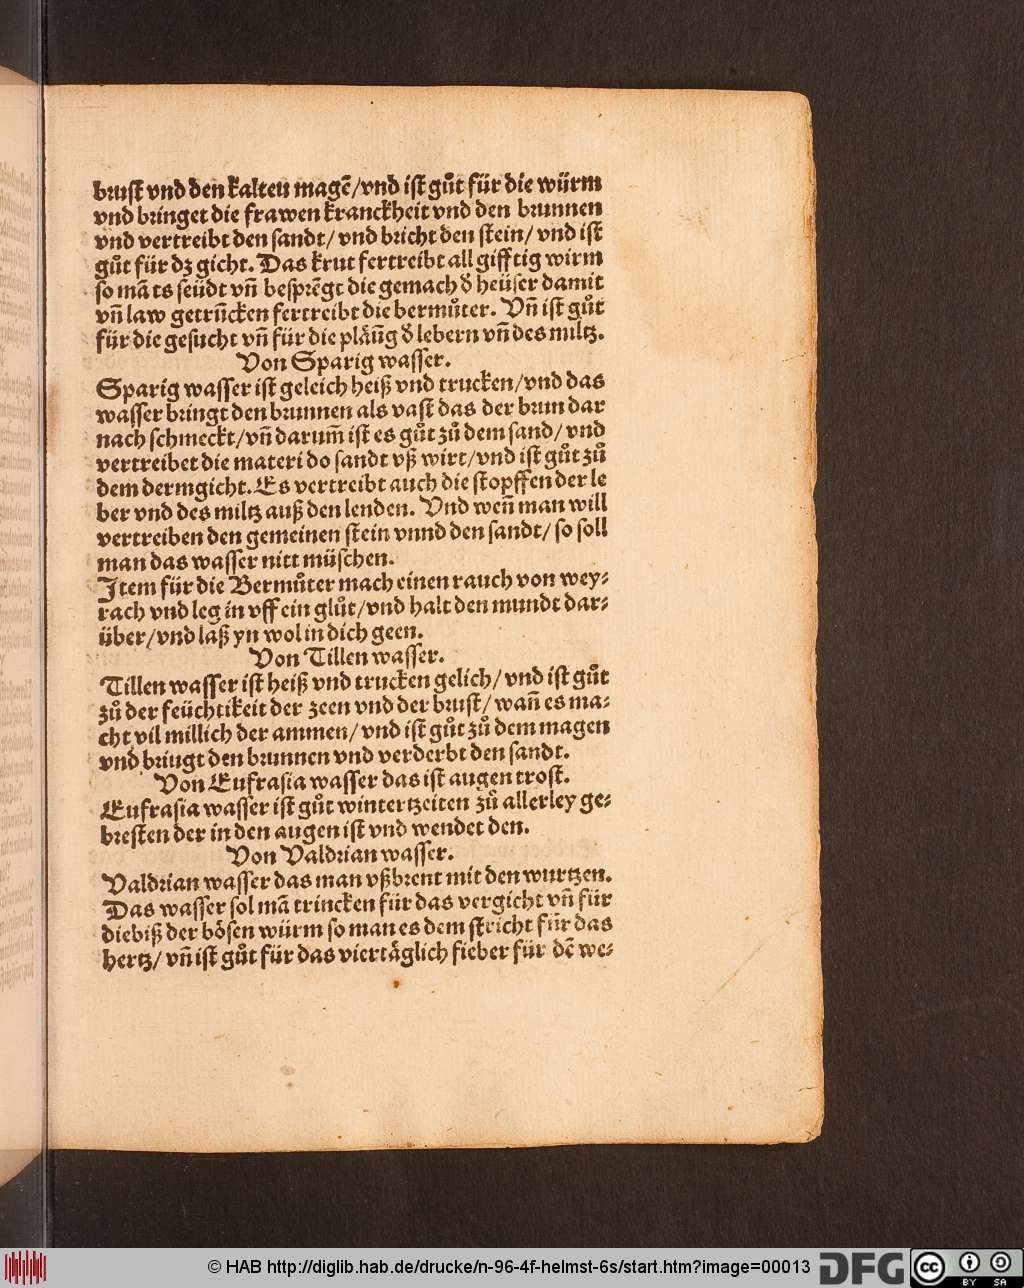 bꝛust vnd den kalteu magē/vnd ist gůt für die würm
vnd bꝛinget die frawen kranckheit vnd den bꝛunnen
vnd vertreibt den sandt/ vnd bꝛicht den stein/ vnd ist
gůt für dz gicht. Das krut fertreibt all gifftig wirm
so mā ts seüdt vn̄ bespꝛēgt die gemach ď heüser damit
vn̄ law getrūcken fertreibt die bermůter. Vn̄ ist gůt
für die gesucht vn̄ für die plåūg ď lebern vn̄ des miltz.
Von Sparig wasser.
Sparig wasser ist geleich heiß vnd trucken/vnd das
wasser bꝛingt den bꝛunnen als vast das der bꝛun dar
nach schmeckt/vn̄ darum̄ ist es gůt zů dem sand/ vnd
vertreibet die materi do sandt vß wirt/vnd ist gůt zů
dem dermgicht. Es vertreibt auch die stopffen der le
ber vnd des miltz auß den lenden. Vnd wen̄ man will
vertreiben den gemeinen stein vnnd den sandt/ so soll
man das wasser nitt müschen.
Item für die Bermůter mach einen rauch von wey⸗
rach vnd leg in vff ein glůt/vnd halt den mundt dar⸗
über/vnd laß yn wol in dich geen.
Von Tillen wasser.
Tillen wasser ist heiß vnd trucken gelich/ vnd ist gůt
zů der feüchtikeit der zeen vnd der bꝛust/ wan̄ es ma⸗
cht vil millich der ammen/ vnd ist gůt zů dem magen
vnd bꝛiugt den bꝛunnen vnd verderbt den sandt.
Von Eufrasia wasser das ist augen trost.
Eufrasia wasser ist gůt wintertzeiten zů allerley ge⸗
bꝛesten der in den augen ist vnd wendet den.
Von Valdꝛian wasser.
Valdꝛian wasser das man vßbꝛent mit den wurtzen.
Das wasser sol mā trincken für das vergicht vn̄ für
diebiß der bösen würm so man es dem stricht für das
hertz/ vn̄ ist gůt für das viertäglich fieber für dē we⸗
© HAB http://diglib.hab.de/drucke/n-96-4f-helmst-6s/start.htm?image=00013
DFG
cc
BY SA